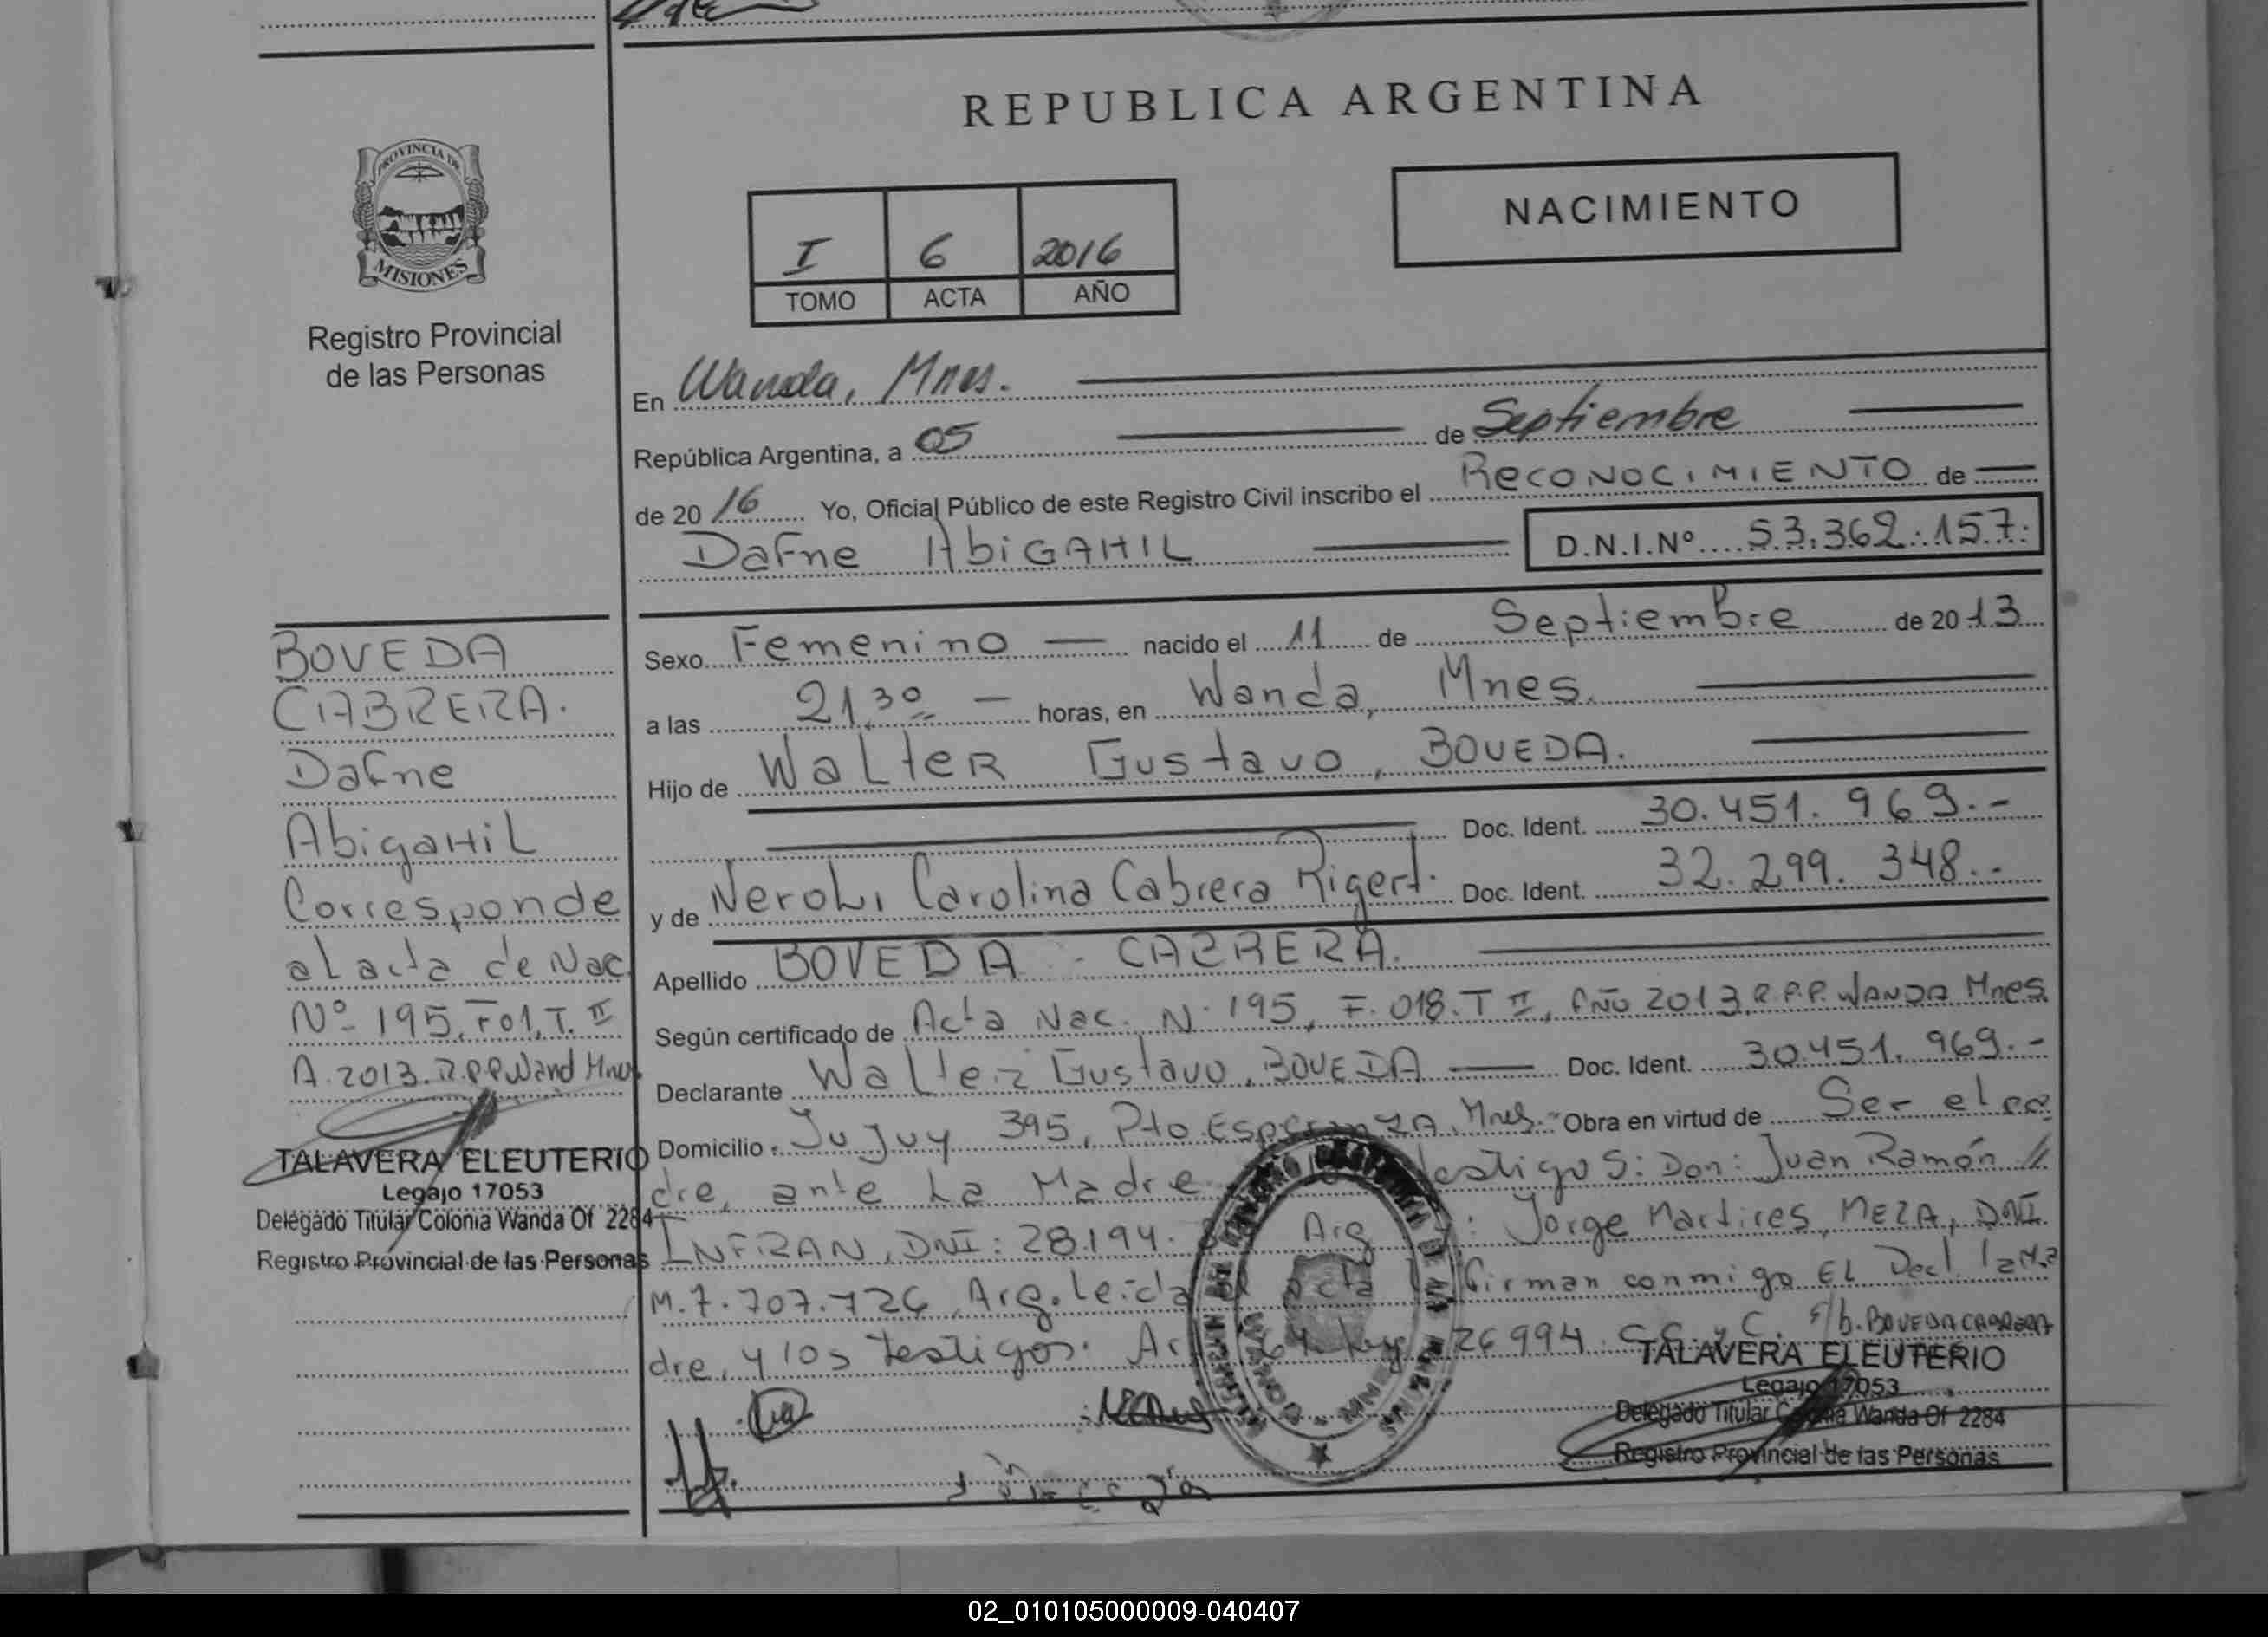 REPUBLICA ARGENTINA
PROVINCIA DE
MISIONES
Registro Provincial
de las Personas
I 6 2016
TOMO ACTA AÑO
NACIMIENTO
En Wanda, Mnes.
República Argentina, a 05 de Septiembre
de 20 16 Yo, Oficial Público de este Registro Civil inscribo el RECONOCIMIENTO de
Dafne AbiGAHIL D.N.I.Nº 53.362.157.
BOVEDA
CABRERA.
Dafne
AbigaHiL
Corresponde
al acta de Nac
Nº 195, F01, T. II
A. 2013. R.P.P. Wand Mnes
TALAVERA ELEUTERIO
Legajo 17053
Delegado Titular Colonia Wanda Of 2284
Registro Provincial de las Personas
Sexo Femenino nacido el 11 de Septiembre de 20 13
a las 21,30 horas, en Wanda, Mnes.
Hijo de WalteR Gustavo, BOVEDA.
Doc. Ident. 30.451.969.-
y de Neroli Carolina Cabrera Rigert. Doc. Ident. 32.299.348.-
Apellido BOVEDA - CABRERA.
Según certificado de Acta Nac. N. 195, F. 018. T II, AÑO 2013, R.P.P. WANDA Mnes.
Declarante Walter Gustavo, BOVEDA Doc. Ident. 30.451.969.-
Domicilio Jujuy 395, Pto ESperanZA, Mnes.- Obra en virtud de Ser el pa
dre, ante La Madre testigos: Don: Juan Ramón //
INFRAN, DNI: 28.194. Arg : Jorge Martires, MEZA, DNI
M. 7.707.726, Arg. Leida el acta la firman conmigo EL Decl. la Ma
dre, y los testigos. Ley 26994. C.C. y C. F/b. BOVEDA CABRERA
WANDA - MNES
TALAVERA ELEUTERIO
Legajo 17053
Delegado Titular Colonia Wanda Of 2284
Registro Provincial de las Personas
02_010105000009-040407